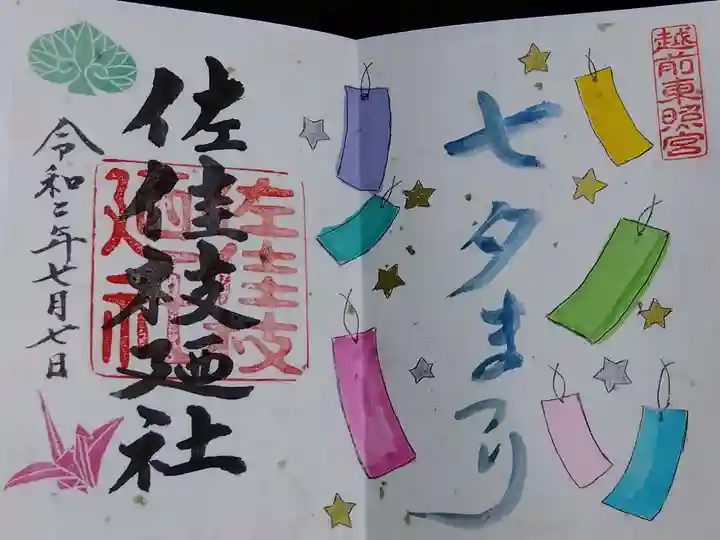 越前東照宮
七夕まつり
佐佳枝廼社
佐佳枝
廼社
令和二年七月七日